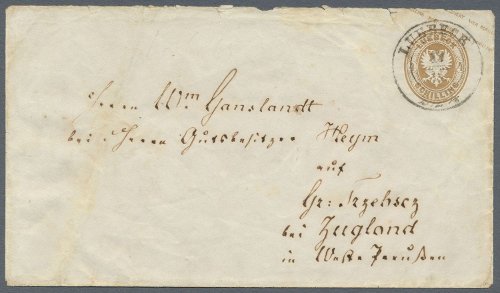 LUEBECK
SCHILLING
Herrn Wm Ganslandt
bei Herrn Gutsbesitzer Heym
auf
Gr: Trzebscz
bei Zugland
in West Preußen